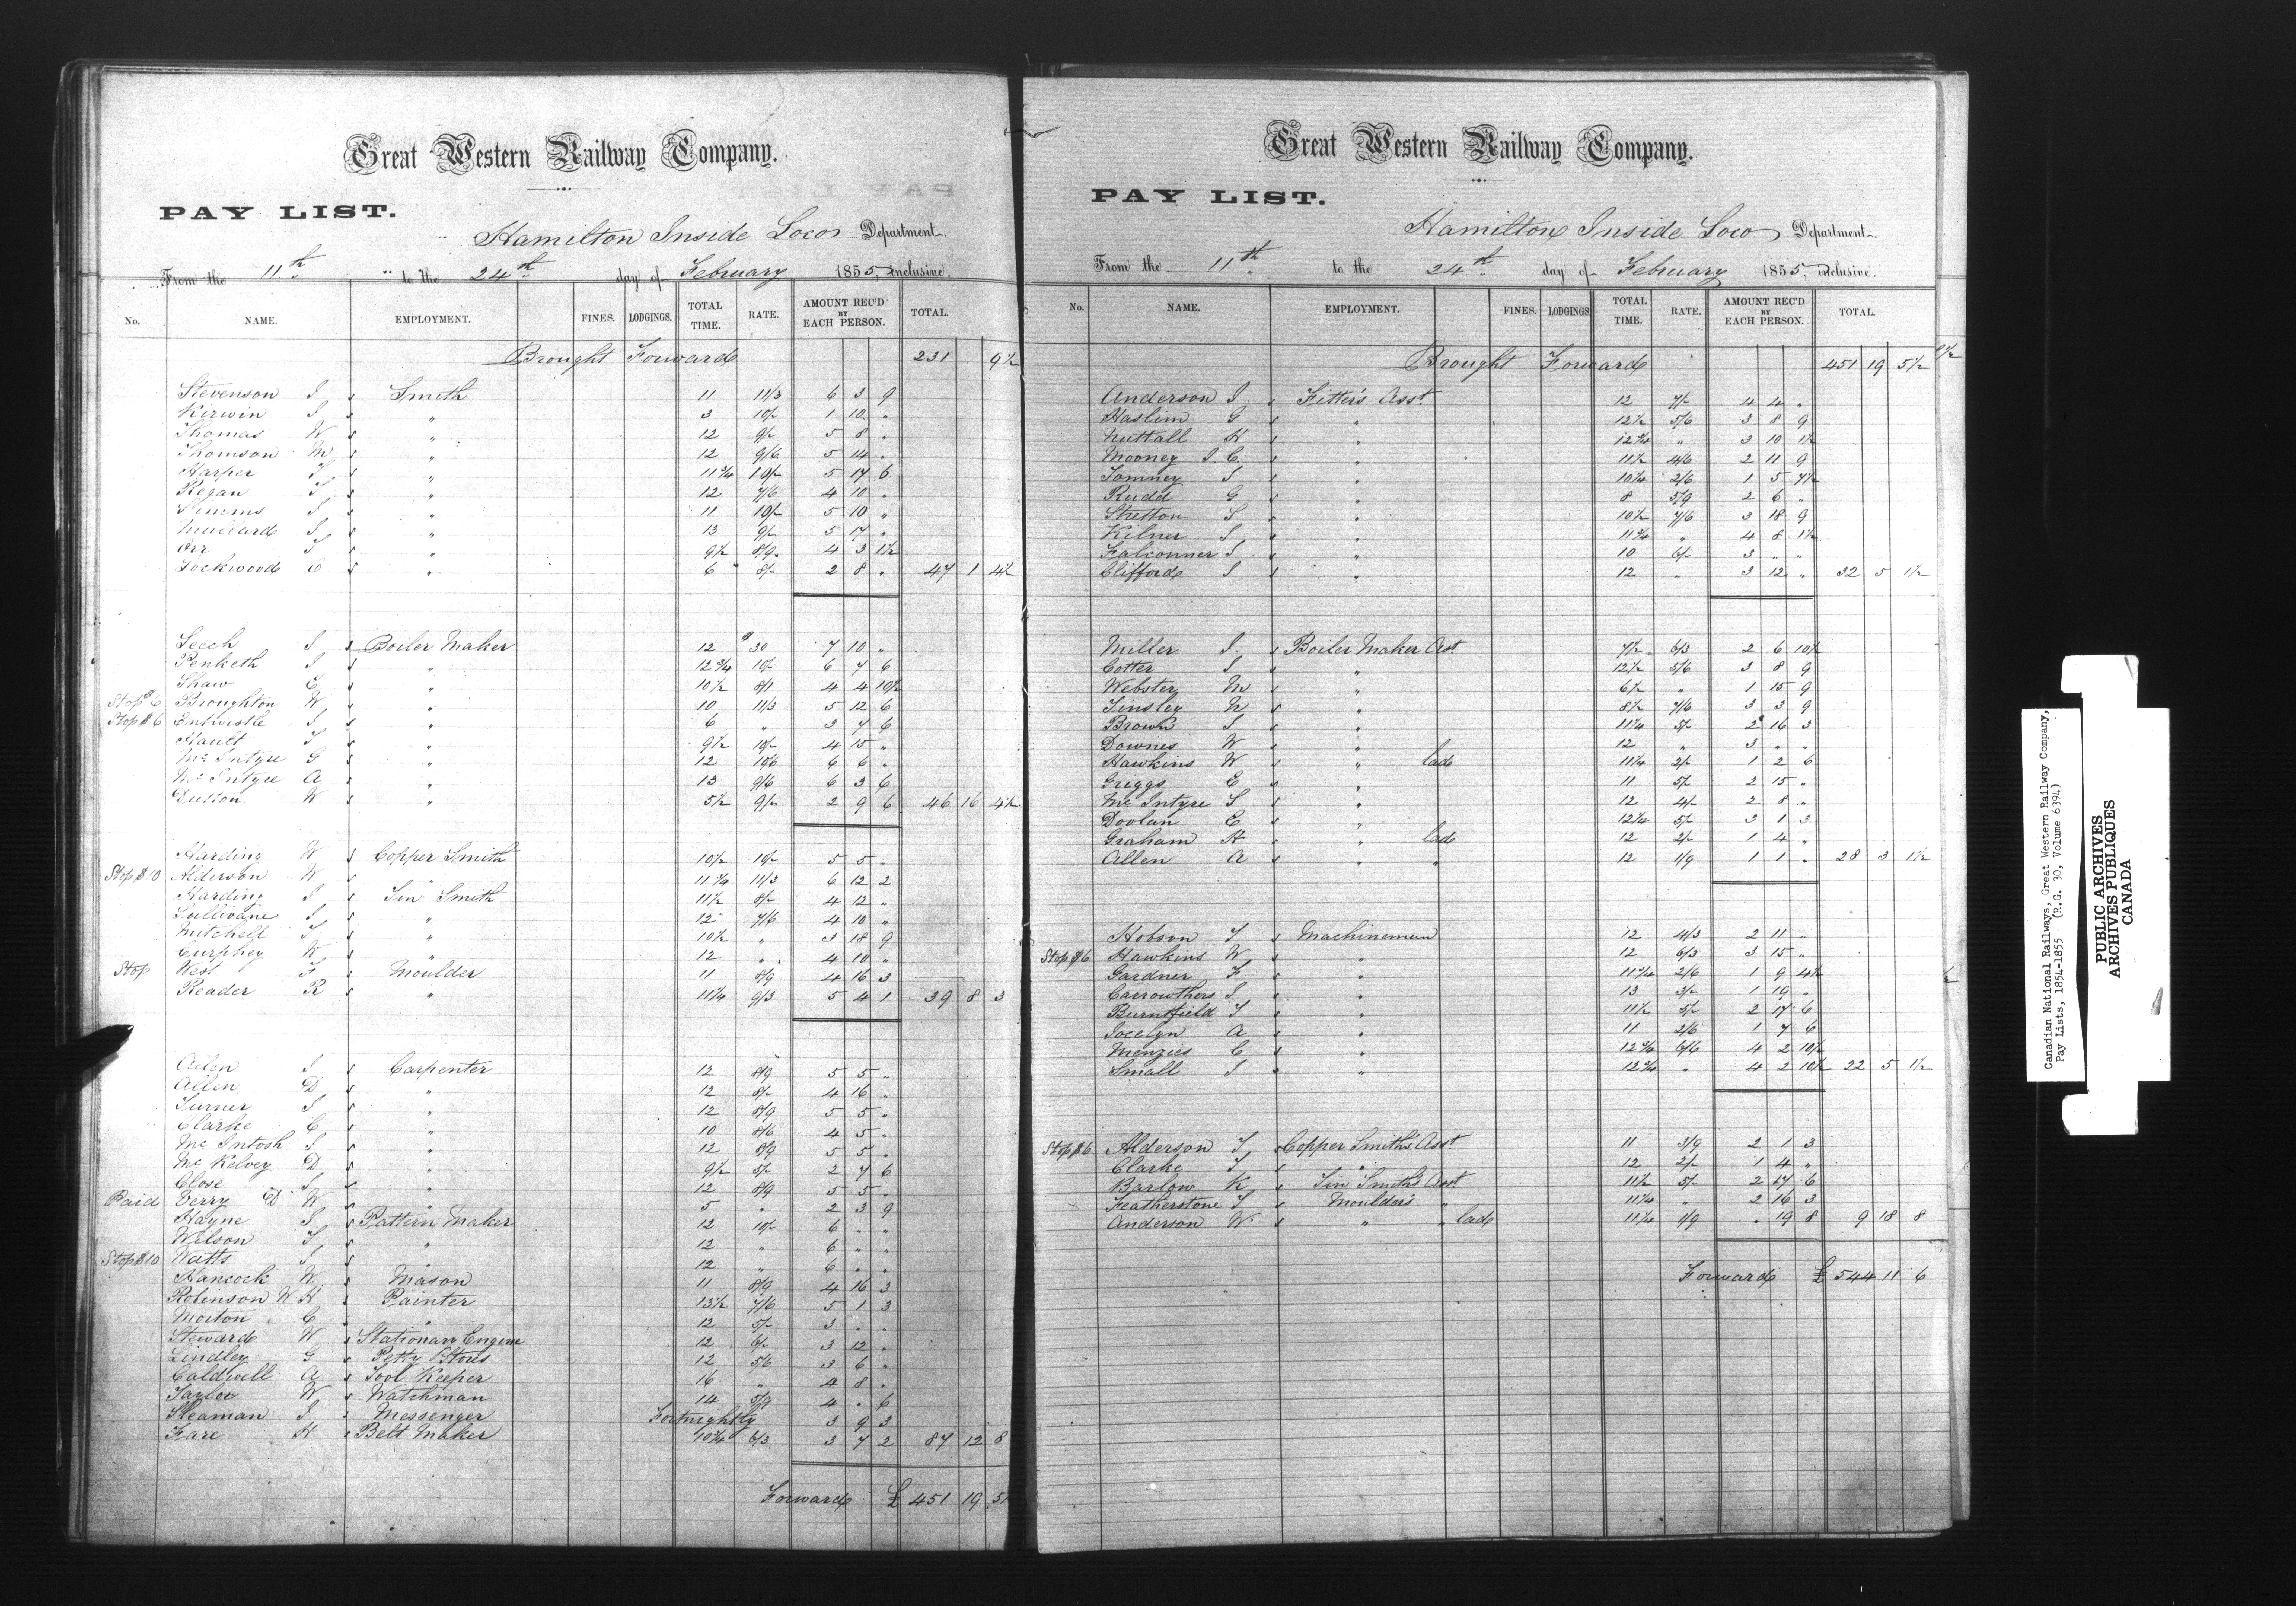 Great Western Railway Company.
PAY LIST.
Hamilton Inside Loco Department.
From the 11th to the 24th day of February 1855, inclusive.
No. NAME. EMPLOYMENT. FINES. LODGINGS. TOTAL TIME. RATE. AMOUNT REC'D BY EACH PERSON. TOTAL.
Brought Forward 231 9½
Stevenson J Smith 11 11/3 6 3 9
Kerwin J " 3 10/- 1 10 "
Thomas W " 12 9/- 5 8 "
Thomson M " 12 9/6 5 14 "
Harper T " 11¾ 10/- 5 17 6
Regan T " 12 7/6 4 10 "
Simms J " 11 10/- 5 10 "
Muillard J " 13 9/- 5 17 "
Orr T " 9½ 8/9 4 3 1½
Lockwood E " 6 8/- 2 8 " 47 1 4½
Leech J Boiler Maker 12 $30 7 10 "
Penketh J " 12¾ 10/- 6 7 6
Shaw E " 10½ 8/1 4 4 10½
Stop $6 Broughton W " 10 11/3 5 12 6
Stop $6 Entwistle J " 6 " 3 7 6
Hautt T " 9½ 10/- 4 15 "
McIntyre G " 12 10/6 6 6 "
McIntyre A " 13 9/6 6 3 6
Dutton W " 5½ 9/- 2 9 6 46 16 4½
Harding W Copper Smith 10½ 10/- 5 5 "
Stop $10 Alderson W " 11¾ 11/3 6 12 2
Harding J Tin Smith 11½ 8/- 4 12 "
Sullivane J " 12 7/6 4 10 "
Mitchell T " 10½ " 3 18 9
Curphey W " 12 " 4 10 "
Stop West F Moulder 11 8/9 4 16 3
Reader R " 11¼ 9/3 5 4 1 39 8 3
Allen J Carpenter 12 8/9 5 5 "
Allen D " 12 8/- 4 16 "
Turner J " 12 8/9 5 5 "
Clarke C " 10 8/6 4 5 "
McIntosh J " 12 8/9 5 5 "
McKelvey D " 9½ 5/- 2 7 6
Close J " 12 8/9 5 5 "
Paid Terry ED W " 5 " 2 3 9
Hayne J Pattern Maker 12 10/- 6 " "
Wilson T " 12 " 6 " "
Stop $10 Watts J " 12 " 6 " "
Hancock W Mason 11 8/9 4 16 3
Robinson W H Painter 13½ 7/6 5 1 3
Morton C " 12 5/- 3 " "
Steward W Stationary Engine 12 6/- 3 12 "
Lindley G Petty Stores 12 5/6 3 6 "
Caldwell A Tool Keeper 16 " 4 8 "
Taylor W Watchman 14 5/9 4 " 6
Sleaman J Messenger Fortnightly 3 9 3
Fare H Belt Maker 10¾ 6/3 3 7 2 87 12 8
Forward £451 19 5½
Great Western Railway Company.
PAY LIST.
Hamilton Inside Loco Department.
From the 11th to the 24th day of February 1855. inclusive.
No. NAME. EMPLOYMENT. FINES. LODGINGS TOTAL TIME. RATE. AMOUNT REC'D BY EACH PERSON. TOTAL.
Brought Forward 451 19 5½
Anderson J Fitter's Asst. 12 7/- 4 4 "
Haslim G " 12½ 5/6 3 8 9
Nuttall H " 12¾ " 3 10 1½
Mooney J. C. " 11½ 4/6 2 11 9
Tomney S " 10¼ 2/6 1 5 7½
Rudd G " 8 5/9 2 6 "
Stretton S " 10½ 7/6 3 18 9
Kilner S " 11¾ " 4 8 1½
Falconner J " 10 6/- 3 " "
Clifford J " 12 " 3 12 " 32 5 1½
Miller J. Boiler Maker Asst 7½ 6/3 2 6 10½
Cotter S " 12½ 5/6 3 8 9
Webster M " 6½ " 1 15 9
Tinsley N " 8½ 7/6 3 3 9
Brown J " 11¼ 5/- 2 16 3
Downes W " 12 " 3 " "
Hawkins W " lad 11¼ 2/- 1 2 6
Griggs E " 11 5/- 2 15 "
McIntyre S " 12 4/- 2 8 "
Doolan E " 12¼ 5/- 3 1 3
Graham H " lad 12 2/- 1 4 "
Allen A " " 12 1/9 1 1 " 28 3 1½
Hobson T Machineman 12 4/3 2 11 "
Stop $6 Hawkins W " 12 6/3 3 15 "
Gardner F " 11¾ 2/6 1 9 4½
Carrowthers J " 13 3/- 1 19 "
Burntfield T " 11½ 5/- 2 17 6
Jocelyn A " 11 2/6 1 7 6
Menzies C " 12¾ 6/6 4 2 10½
Small J " 12¾ " 4 2 10½ 22 5 1½
Stop $6 Alderson T Copper Smith's Asst 11 3/9 2 1 3
Clarke T " 12 2/- 1 4 "
Barlow K Tin Smith's Asst 11½ 5/- 2 17 6
Featherstone T Moulder's " 11¼ " 2 16 3
Anderson W " " lad 11¼ 1/9 " 19 8 9 18 8
Forward £544 11 6
Canadian National Railways, Great Western Railway Company,
Pay Lists, 1854-1855 (R.G. 30, Volume 6394)
PUBLIC ARCHIVES
ARCHIVES PUBLIQUES
CANADA